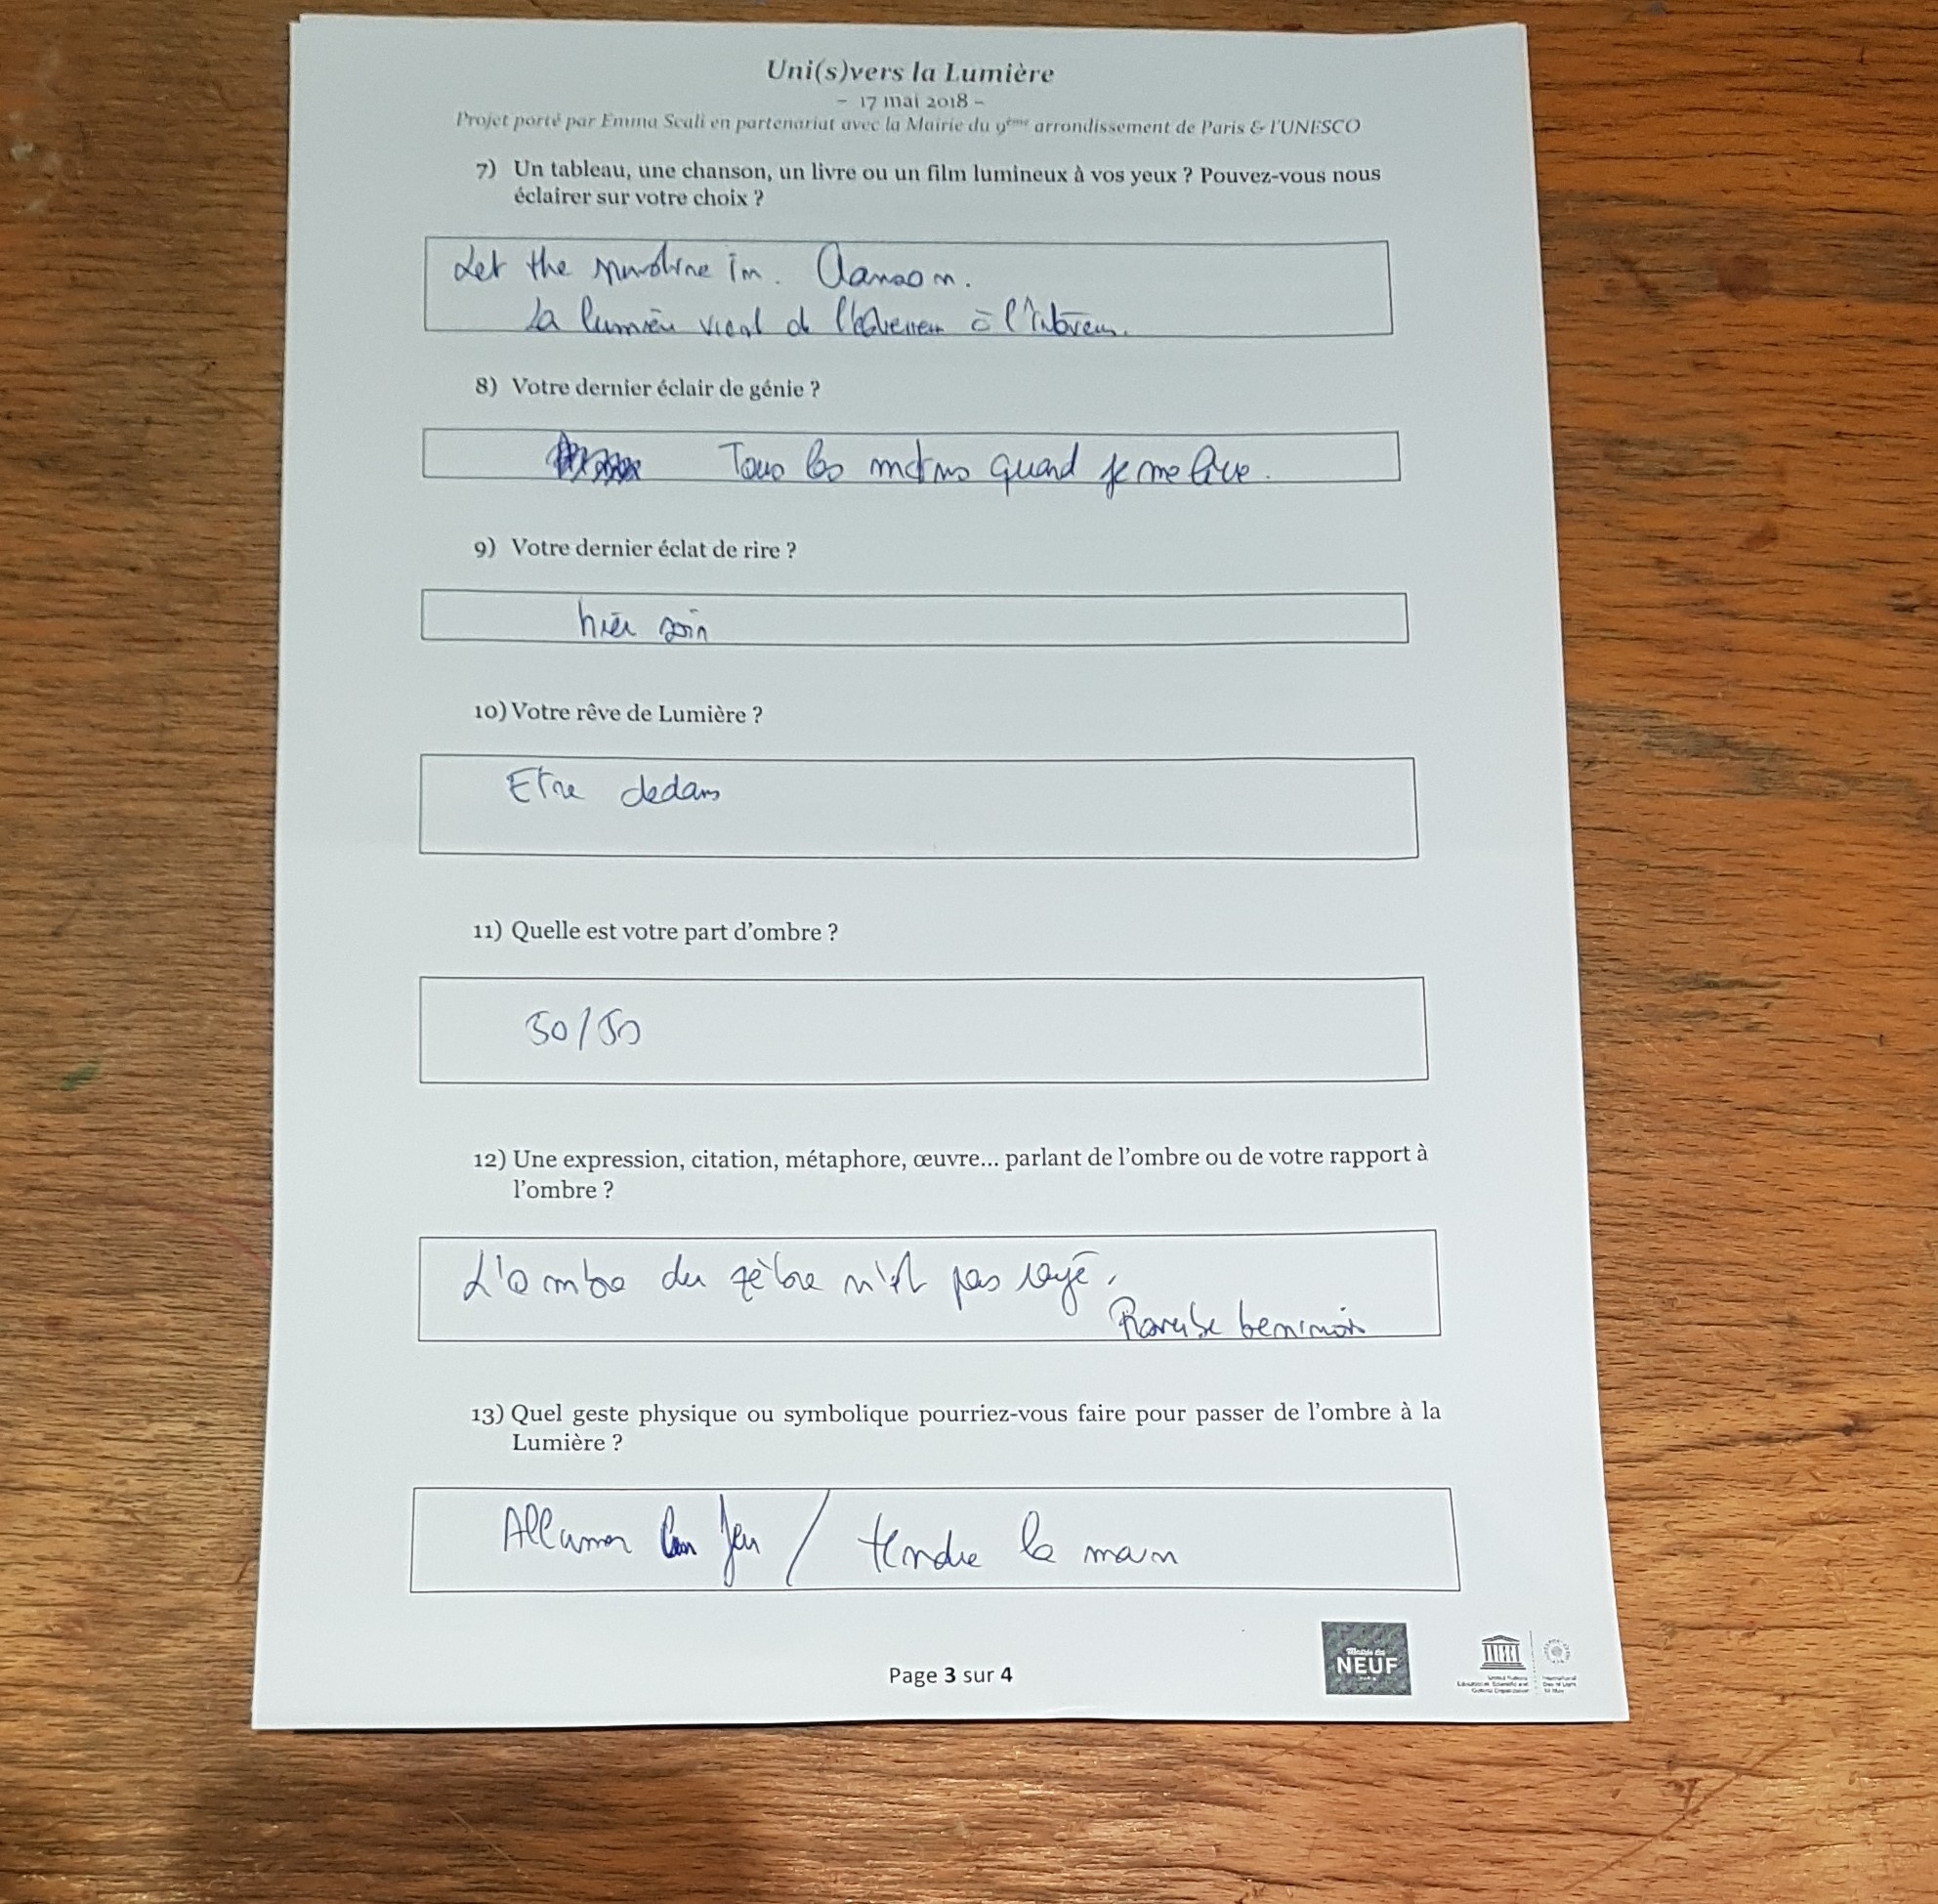 Uni(s)vers la Lumière
- 17 mai 2018 -
Projet porté par Emma Scali en partenariat avec la Mairie du 9ème arrondissement de Paris & l'UNESCO
7) Un tableau, une chanson, un livre ou un film lumineux à vos yeux ? Pouvez-vous nous
éclairer sur votre choix ?
Let the sunshine in. Chanson.
La lumière vient de l'extérieur à l'intérieur.
8) Votre dernier éclair de génie ?
Tous les matins quand je me lève.
9) Votre dernier éclat de rire ?
hier soir
10) Votre rêve de Lumière ?
Etre dedans
11) Quelle est votre part d'ombre ?
50/50
12) Une expression, citation, métaphore, œuvre... parlant de l'ombre ou de votre rapport à
l'ombre ?
L'ombre du zèbre n'est pas rayé.
Proverbe beninois
13) Quel geste physique ou symbolique pourriez-vous faire pour passer de l'ombre à la
Lumière ?
Allumer un feu / tendre la main
Page 3 sur 4
NEUF